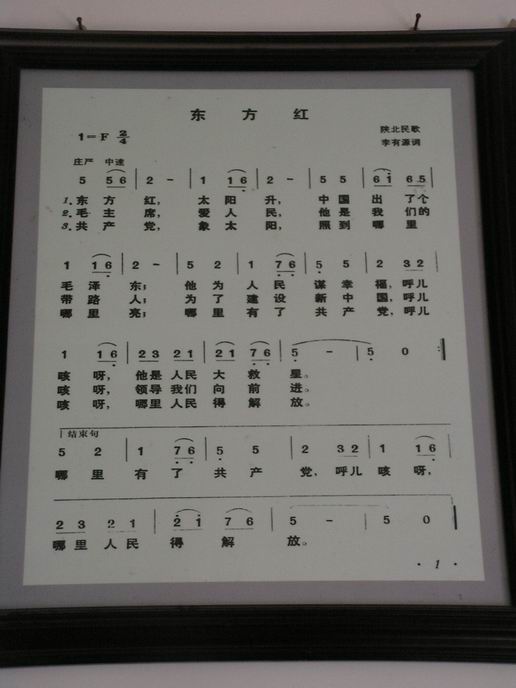 东方红
1=F 2/4
陕北民歌
李有源词
庄严 中速
5 5 6 | 2 - | 1 1 6 | 2 - | 5 5 | 6 i 6 5 |
1. 东方红, 太阳升, 中国出了个
2. 毛主席, 爱人民, 他是我们的
3. 共产党, 象太阳, 照到哪里
1 1 6 | 2 - | 5 2 | 1 7 6 | 5 5 | 2 3 2 |
毛泽东; 他为人民谋幸福, 呼儿
带路人; 为了建设新中国, 呼儿
哪里亮; 哪里有了共产党, 呼儿
1 1 6 | 2 3 2 1 | 2 1 7 6 | 5 - | 5 0 :|
咳呀, 他是人民大救星。
咳呀, 领导我们向前进。
咳呀, 哪里人民得解放。
结束句
5 2 | 1 7 6 | 5 5 | 2 3 2 | 1 1 6 |
哪里有了共产党, 呼儿咳呀,
2 3 2 1 | 2 i 7 6 | 5 - | 5 0 |
哪里人民得解放。
· 1 ·